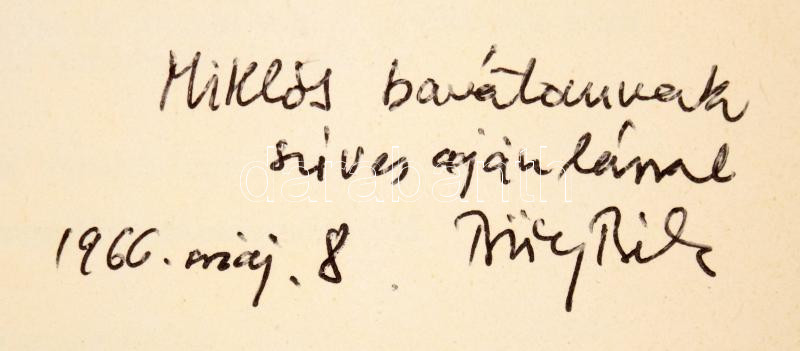 Miklós barátomnak
szíves ajánlással
1966. máj. 8.
darabanth